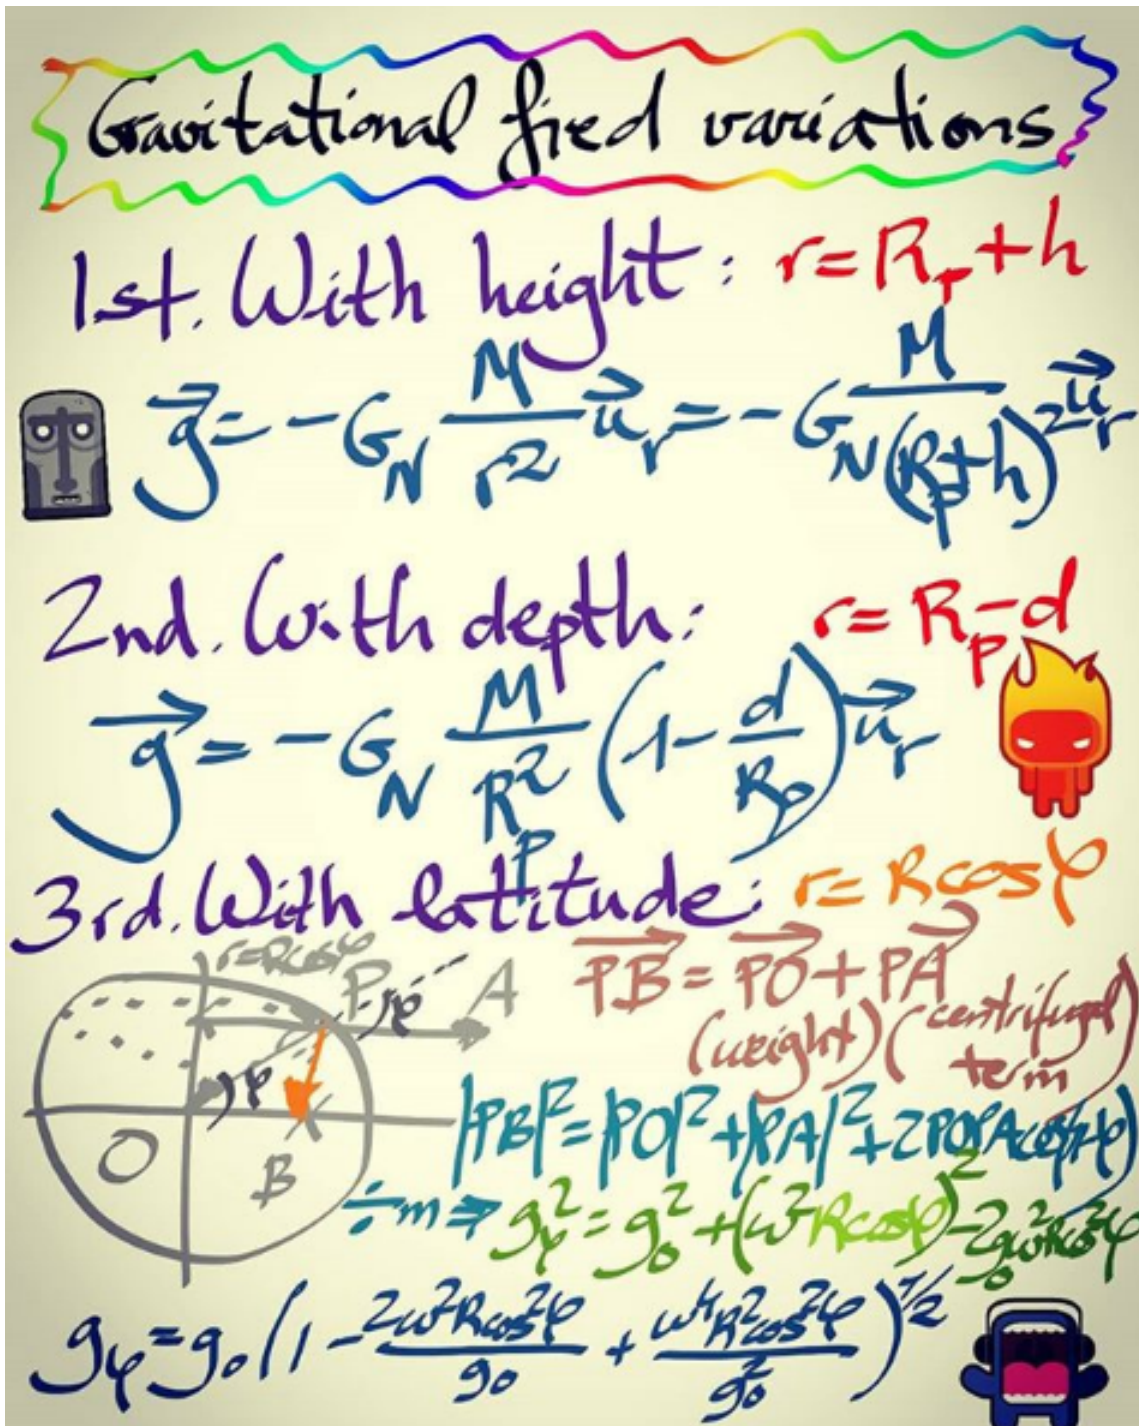 Gravitational fied variations
1st. With height: r = R_p + h
g⃗ = -G_N M/r² u⃗_r = -G_N M/(R_p+h)² u⃗_r
2nd. With depth: r = R_p - d
g⃗ = -G_N M/R_p² (1 - d/R_p) u⃗_r
3rd. With latitude: r = Rcosφ
r=Rcosφ
P φ A
φ
O
B
PB⃗ = PO⃗ + PA⃗
(weight) (centrifugal term)
|PB|² = |PO|² + |PA|² + 2POPAcos(π-φ)
÷m ⇒ g_φ² = g_0² + (ω²Rcosφ)² - 2g_0ω²Rcos²φ
g_φ = g_0 (1 - 2ω²Rcos²φ/g_0 + ω⁴R²cos²φ/g_0²)^1/2